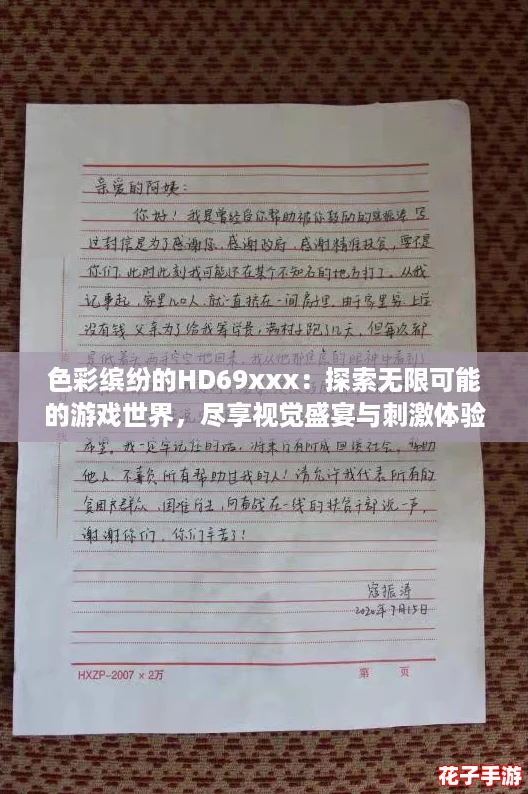 亲爱的阿姨：
你好！我是曾经自你帮助被你鼓励的寇振涛 写
过封信是为了感谢您、感谢政府、感谢精准扶贫，要不是
你们，此时此刻我可能还在某个不知名的地方打工。从我
记事起，家里几口人，就一直挤在一间房子里，由于家里穷，上学
没有钱，父亲为了给我筹学费，满村子跑了几天，但每次都
是低着头两手空空地回来，我从他
色彩缤纷的HD69xxx：探索无限可能
的游戏世界，尽享视觉盛宴与刺激体验
我一定牢记
将来行有所成回馈社会，帮助
他人，不辜负所有帮助过我的人！请允许我代表所有的
贫困户群众、困难学生，向奋战在一线的扶贫干部说一声，
谢谢你们，你们辛苦了！
寇振涛
2020年9月15日
HXZP-2007×2万 第 页
花子手游